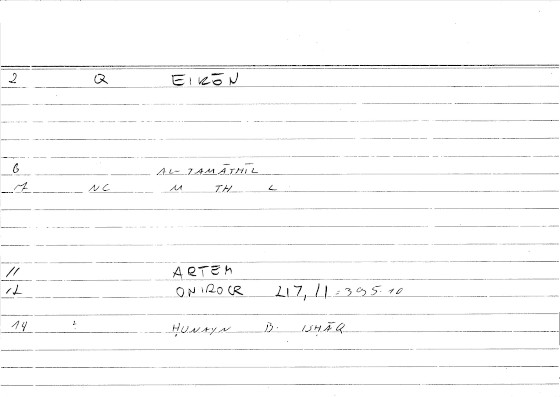 2 Q EIKŌN
6 AL-TAMĀTHĪL
NC M TH L
11 ARTEM
12 ONIROCR 217,11=395.10
14 : ḤUNAYN B. ISḤĀQ